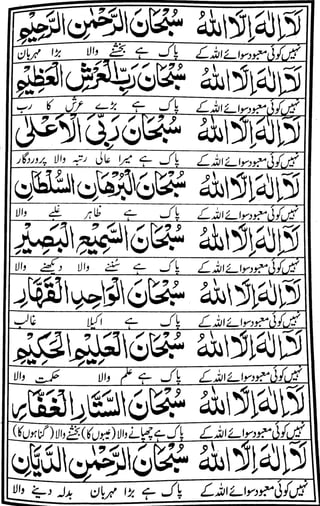 لَآ اِلٰهَ اِلَّا اللهُ سُبْحَانَ الرَّحْمٰنِ الرَّحِيْمِ
نہیں کوئی معبود سوائے اللہ کے پاک ہے بخشنے والا بڑا مہربان
لَآ اِلٰهَ اِلَّا اللهُ سُبْحَانَ رَبِّ الْعَرْشِ الْعَظِيْمِ
نہیں کوئی معبود سوائے اللہ کے پاک ہے بڑے عرش کا رب
لَآ اِلٰهَ اِلَّا اللهُ سُبْحَانَ رَبِّىَ الْاَعْلٰى
نہیں کوئی معبود سوائے اللہ کے پاک ہے میرا عالی رتبہ والا پروردگار
لَآ اِلٰهَ اِلَّا اللهُ سُبْحَانَ الْبُرْهَانِ السُّلْطَانِ
نہیں کوئی معبود سوائے اللہ کے پاک ہے ظاہر غلبے والا
لَآ اِلٰهَ اِلَّا اللهُ سُبْحَانَ السَّمِيْعِ الْبَصِيْرِ
نہیں کوئی معبود سوائے اللہ کے پاک ہے سُننے والا دیکھنے والا
لَآ اِلٰهَ اِلَّا اللهُ سُبْحَانَ الْوَاحِدِ الْقَهَّارِ
نہیں کوئی معبود سوائے اللہ کے پاک ہے اکیلا غالب
لَآ اِلٰهَ اِلَّا اللهُ سُبْحَانَ الْعَلِيْمِ الْحَكِيْمِ
نہیں کوئی معبود سوائے اللہ کے پاک ہے علم والا حکمت والا
لَآ اِلٰهَ اِلَّا اللهُ سُبْحَانَ السَّتَّارِ الْغَفَّارِ
نہیں کوئی معبود سوائے اللہ کے پاک ہے چھپانے والا (عیبوں کا) بخشنے والا (گناہوں کا)
لَآ اِلٰهَ اِلَّا اللهُ سُبْحَانَ الرَّحْمٰنِ الدَّيَّانِ
نہیں کوئی معبود سوائے اللہ کے پاک ہے بڑا مہربان بدلہ دینے والا